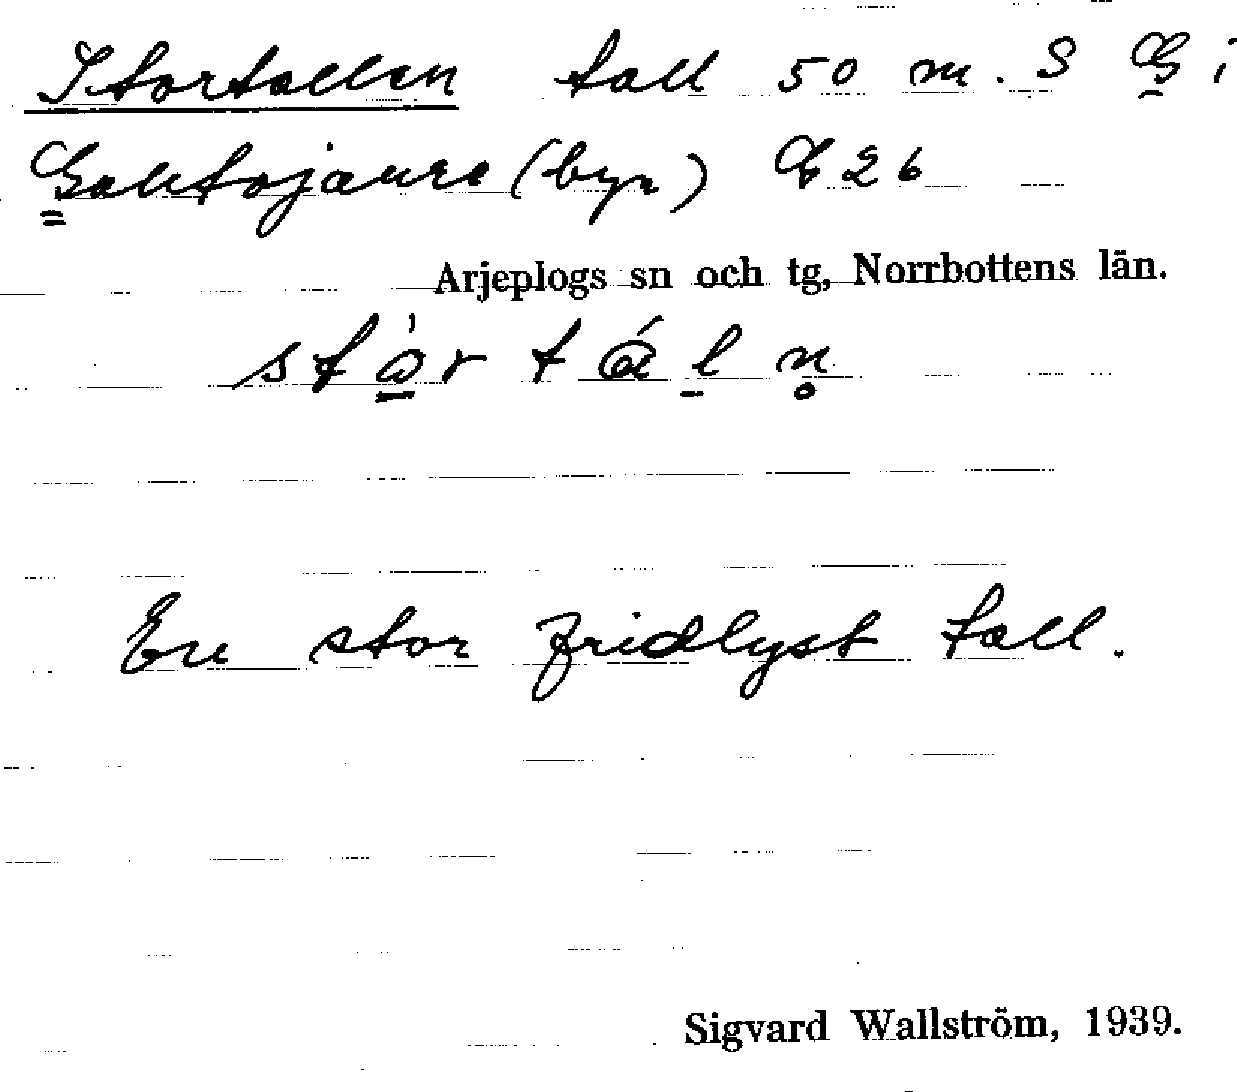 Stortallen tall 50 m. S G i
Galtojaure (byn) G 26
Arjeplogs sn och tg, Norrbottens län.
En stor fridlyst tall.
Sigvard Wallström, 1939.